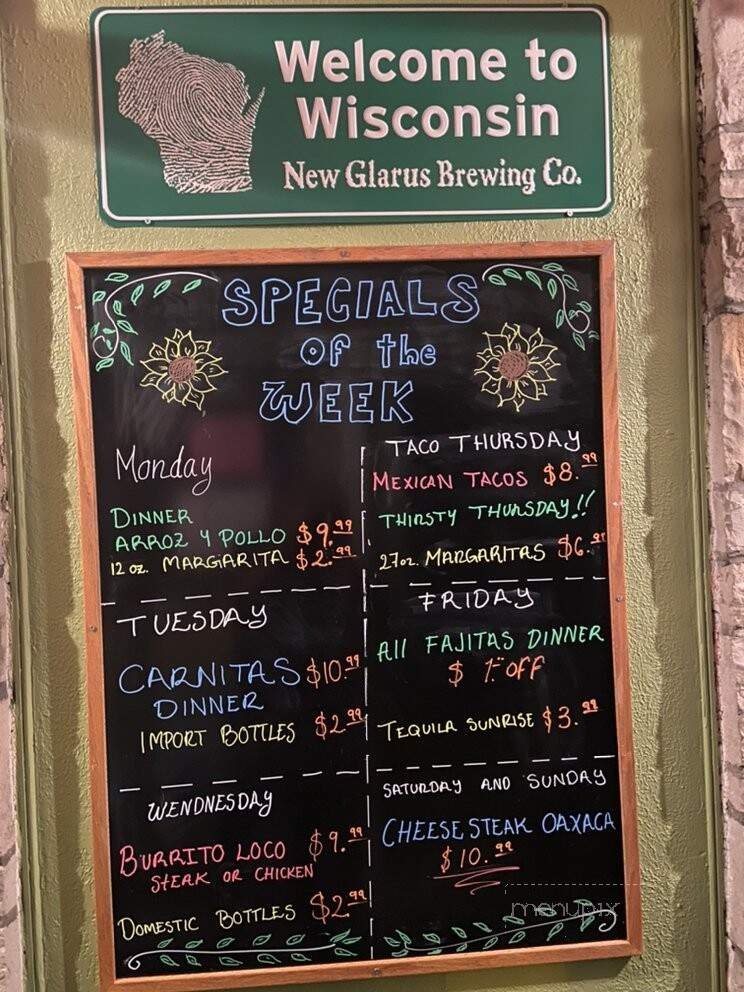 Welcome to
Wisconsin
New Glarus Brewing Co.
SPECIALS
OF the
WEEK
Monday
DINNER
ARROZ Y POLLO $9.99
12 oz. MARGARITA $2.99
TUESDAY
CARNITAS $10.99
DINNER
IMPORT BOTTLES $2.99
WENDNESDAY
BURRITO LOCO $9.99
STEAK OR CHICKEN
DOMESTIC BOTTLES $2.99
TACO THURSDAY
MEXICAN TACOS $8.99
THIRSTY THURSDAY!!
27oz. MARGARITAS $6.99
FRIDAY
All FAJITAS DINNER
$ 1.00 OFF
TEQUILA SUNRISE $3.99
SATURDAY AND SUNDAY
CHEESE STEAK OAXACA
$10.99
menupix